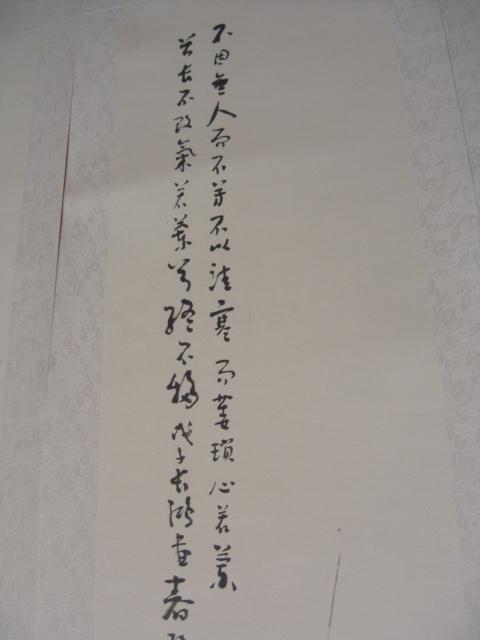 不因無人而不芳不以清寒而萎瑣心若蘭
兮長不改氣若蘭兮終不移戊子長鴻畫春